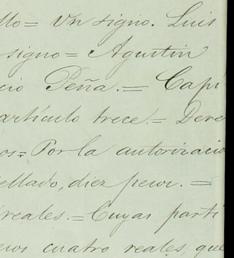 llo = Un signo. Luis
signo = Agustin
cio Peña. = Capí
artículo trece. = Dere
os = Por la autorizacio
ellado, diez pesos. =
reales. = Cuyas parti
eros cuatro reales, que